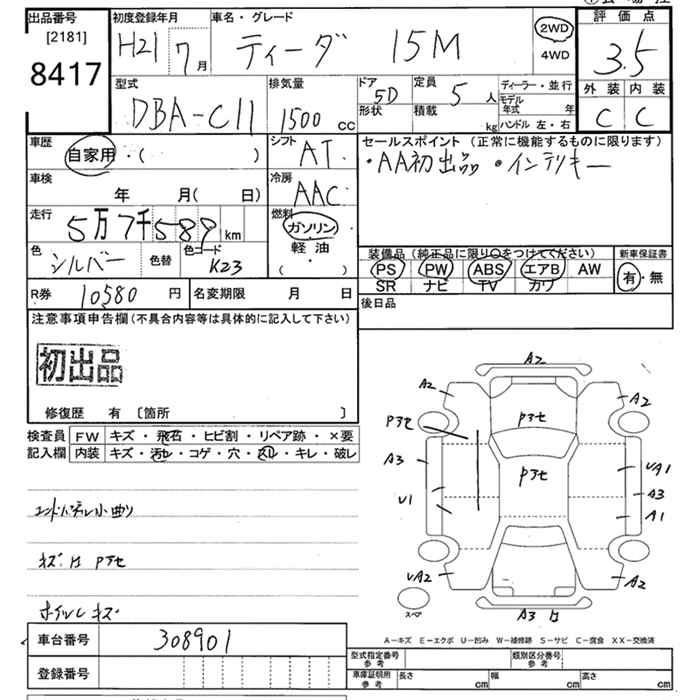 出品番号
[2181]
8417
初度登録年月
H21 7 月
車名・グレード
ティーダ 15M
2WD
4WD
評価点
3.5
外装 内装
C C
型式
DBA-C11
排気量
1500 cc
ドア 5D
形状
定員 5 人
積載 kg
ディーラー・並行
モデル年式 年
ハンドル 左・右
車歴
自家用・( )
シフト AT
セールスポイント (正常に機能するものに限ります)
・AA初出品 ・インテリキー
車検
年 月( 日)
冷房 AAC
走行
5万7千589 km
燃料
ガソリン
軽油
( )
色 シルバー 色替
色コード K23
装備品 (純正品に限り○をつけてください)
PS PW ABS エアB AW
SR ナビ TV カワ
新車保証書
有・無
R券 10580 円
名変期限 月 日
後日品
注意事項申告欄(不具合内容等は具体的に記入して下さい)
初出品
修復歴 有 〔箇所 〕
検査員 FW キズ・飛石・ヒビ割・リペア跡・×要
記入欄 内装 キズ・汚レ・コゲ・穴・スレ・キレ・破レ
エンドパネル小曲り
キズ・凹 Pアセ
ホイルしキズ
A2
A2
A2
Pアセ
Pアセ
A3
Pアセ
UA1
A3
U1
A1
UA2
A2
スペア
A3 凹
A-キズ E-エクボ U-凹み W-補修跡 S-サビ C-腐食 XX-交換済
車台番号 308901
登録番号
型式指定番号
参考
類別区分番号
参考
車庫証明用
参考
長さ cm
幅 cm
高さ cm